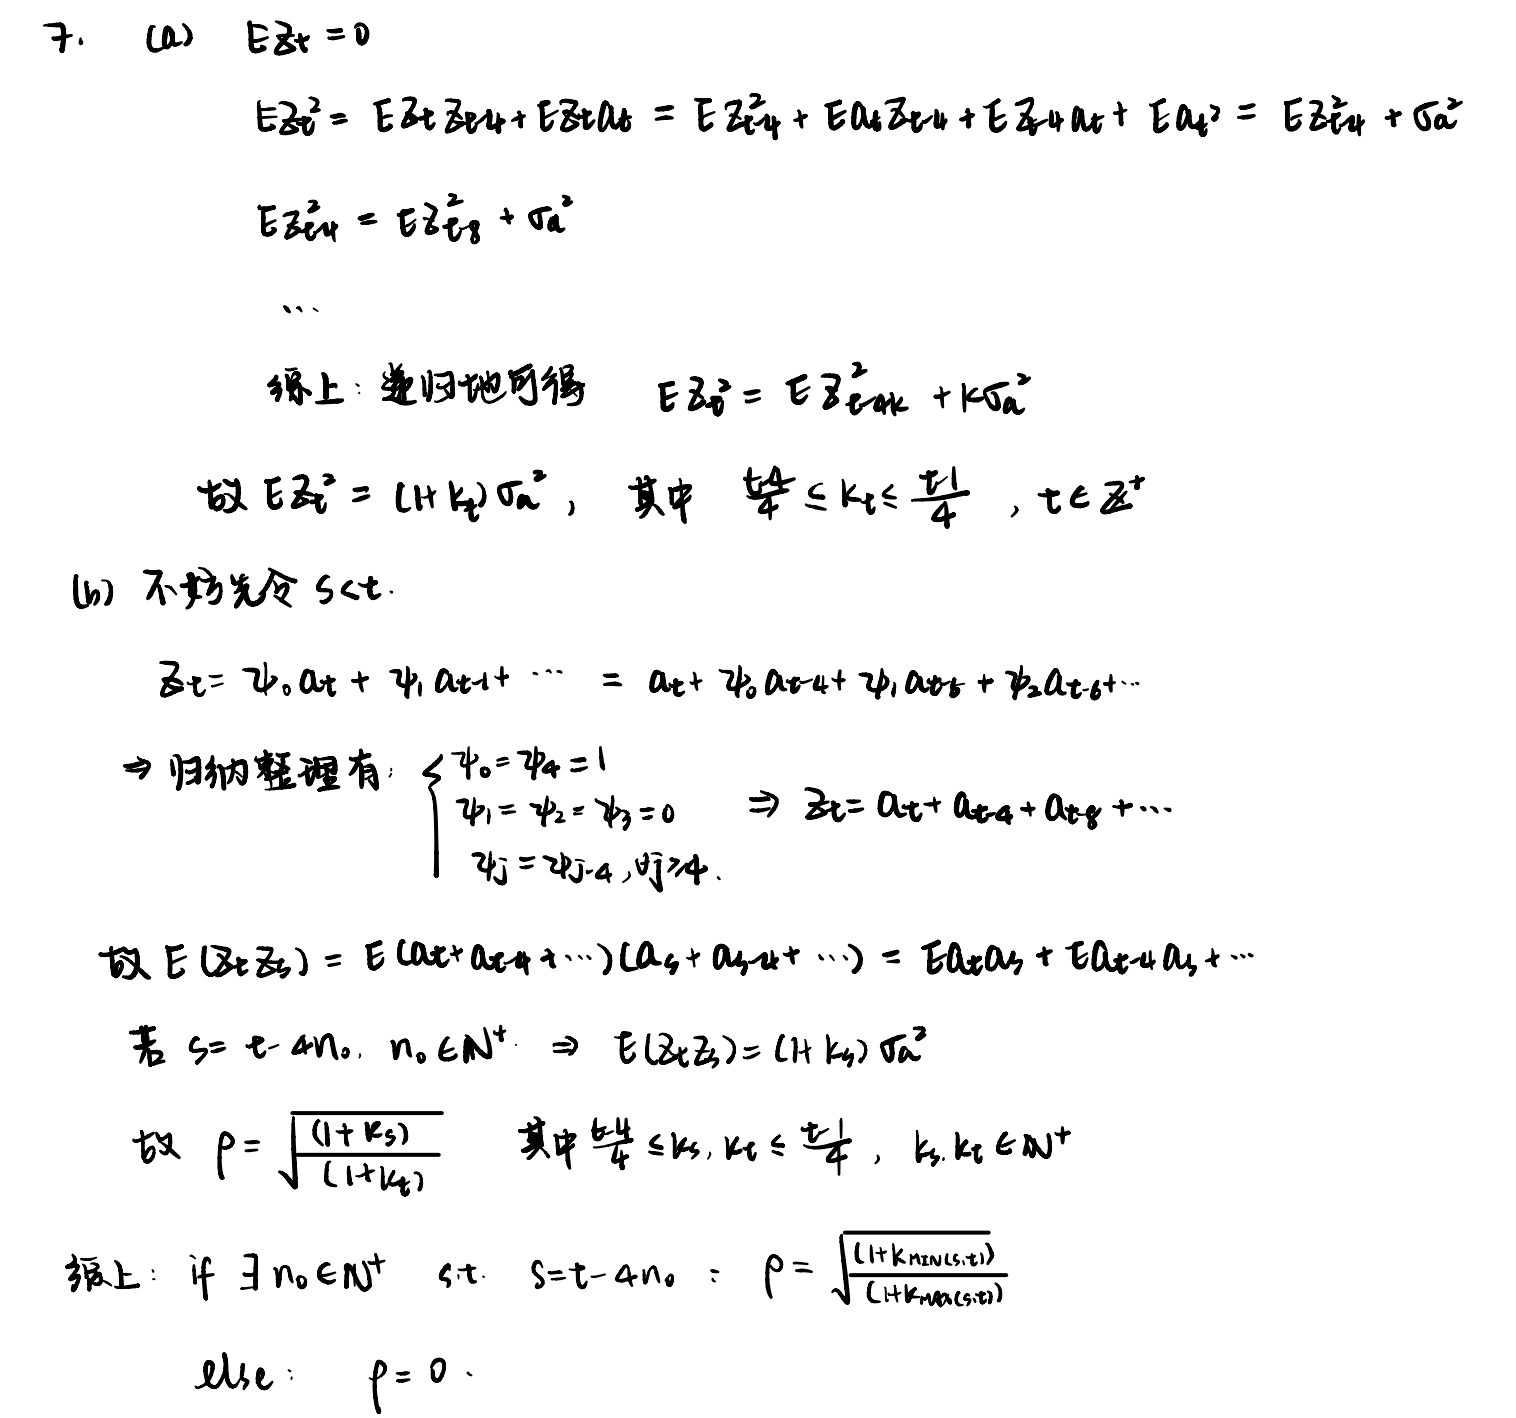 7. (a) EZt = 0
EZt² = EZtZt-4 + EZtat = EZ²t-4 + EatZt-4 + EZt-4at + Eat² = EZ²t-4 + σa²
EZ²t-4 = EZ²t-8 + σa²
...
综上: 递归地可得 EZt² = EZ²t-4k + kσa²
故 EZt² = (1+kt)σa², 其中 (t-4)/4 ≤ kt ≤ (t-1)/4, t∈Z⁺
(b) 不妨先令 s<t.
Zt = ψ0at + ψ1at-1 + ... = at + ψ0at-4 + ψ1at-5 + ψ2at-6 + ...
⇒ 归纳整理有: { ψ0 = ψ4 = 1
ψ1 = ψ2 = ψ3 = 0 ⇒ Zt = at + at-4 + at-8 + ...
ψj = ψj-4, ∀j≥4.
故 E(ZtZs) = E(at + at-4 + ...)(as + as-4 + ...) = Eatas + Eat-4as + ...
若 s = t-4n0, n0∈N⁺ ⇒ E(ZtZs) = (1+ks)σa²
故 ρ = √((1+ks)/(1+kt)) 其中 (t-4)/4 ≤ ks, kt ≤ (t-1)/4, ks, kt∈N⁺
综上: if ∃n0∈N⁺ s.t. s=t-4n0 : ρ = √((1+kMIN(s,t))/(1+kMAX(s,t)))
else: ρ = 0.